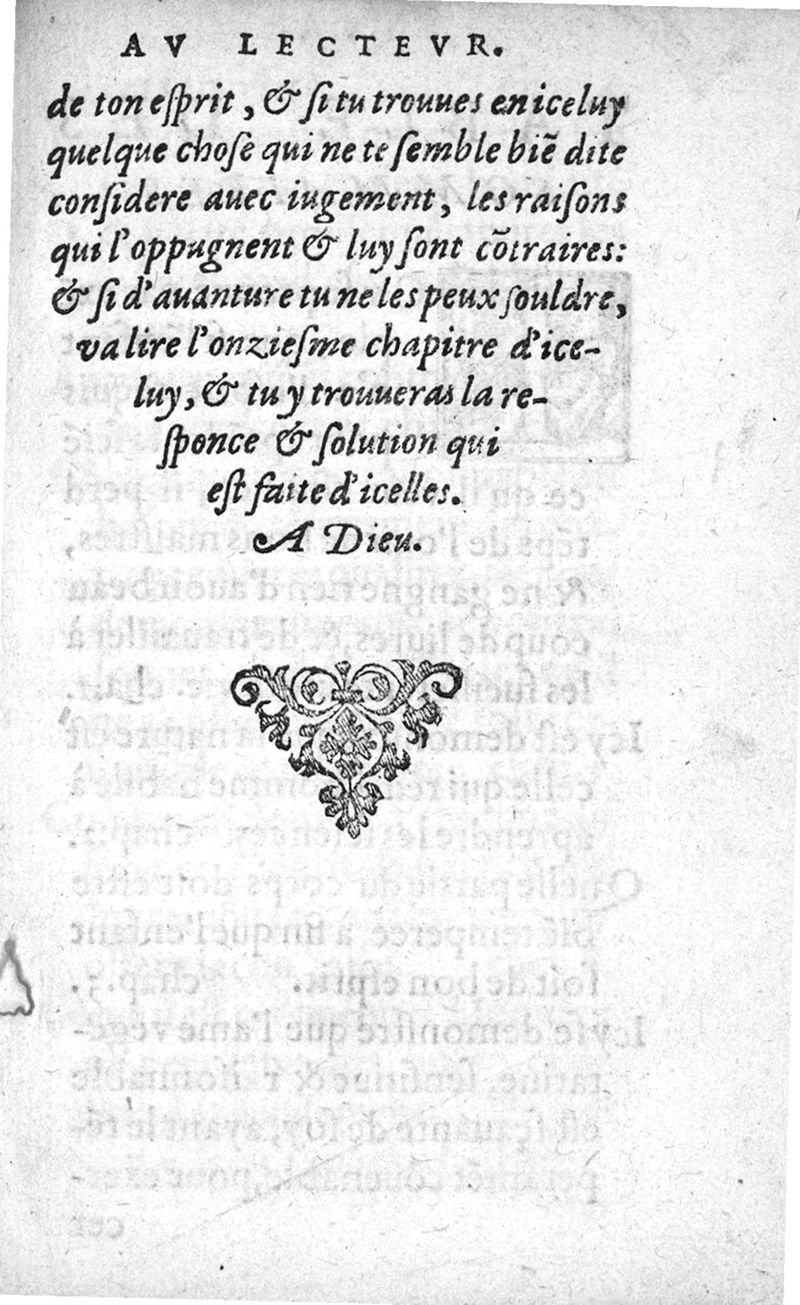 AV LECTEVR.
de ton eſprit, & ſi tu trouues en iceluy
quelque choſe qui ne te ſemble biẽ dite
conſidere auec iugement, les raiſons
qui l'oppugnent & luy ſont cõtraires:
& ſi d'auanture tu ne les peux ſouldre,
va lire l'onzieſme chapitre d'ice-
luy, & tu y trouueras la re-
ſponce & ſolution qui
eſt faite d'icelles.
A Dieu.